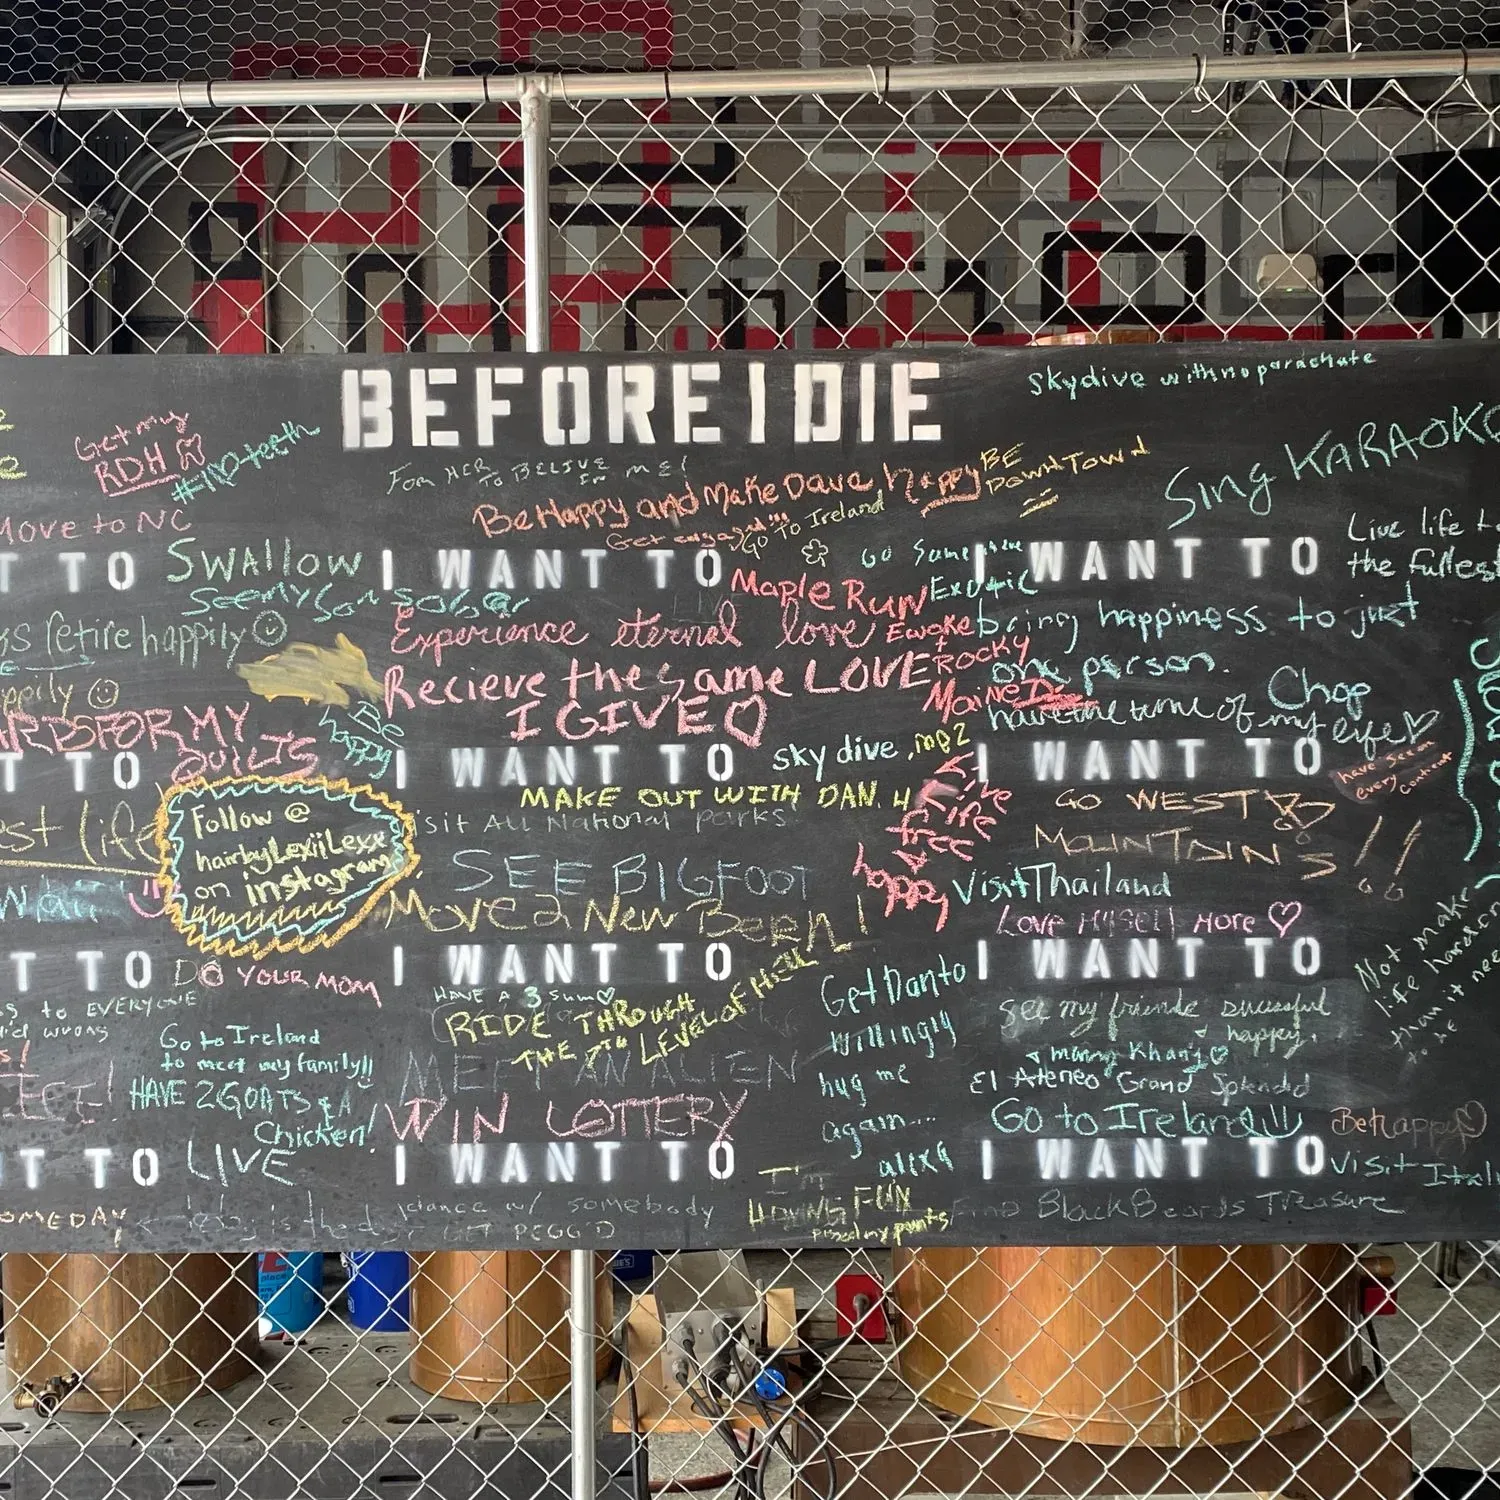 BEFORE I DIE
skydive with no parachute
Get my
RDH
teeth
FOR HER TO BELIVE IN ME!
Be Happy and Make Dave happy
BE
DOWNTOWN
Sing KARAOKE
Move to NC
Get engaged!!!
GO TO Ireland
GO Somewhere
Exotic
Live life to
the fullest
T TO SWALLOW
I WANT TO
I WANT TO
Maple Run
retire happily
Experience eternal love
Ewoke
+
ROCKY
bring happiness to just
one person.
Recieve the same LOVE
I GIVE
Maine
Chop
have the time of my life
FOR MY
QUILTS
Be
happy
T TO
I WANT TO
sky dive
.me2
I WANT TO
have sex on
every continent
MAKE OUT WITH DAN. H
GO WEST
MOUNTAINS!!
Follow @
hairbyLexiiLexx
on instagram
est life
Visit All National parks
SEE BIGFOOT
Live
life
free
happy
Visit Thailand
LOVE MYSELF MORE
Move 2 New Bern!
T TO DO YOUR MOM
I WANT TO
I WANT TO
Not make
life harder
than it needs
to be
HAVE A 3sum
RIDE THROUGH
THE 7TH LEVEL OF HELL
Get Dan to
willingly
hug me
again...
alixq
see my friends sucessful
+ happy.
+ marry Khang
El Ateneo Grand Splendid
Go to Ireland!!!
to EVERYONE
wrong
Go to Ireland
to meet my family!!
HAVE 2 GOATS & A
Chicken!
MEET AN ALIEN
WIN LOTTERY
Be happy
TO LIVE
I WANT TO
I WANT TO
Visit Itali
I'm
HAVING FUN
pissed my pants
SOMEDAY
dance w/ somebody
GET PEGG'D
Find BlackBeards Treasure